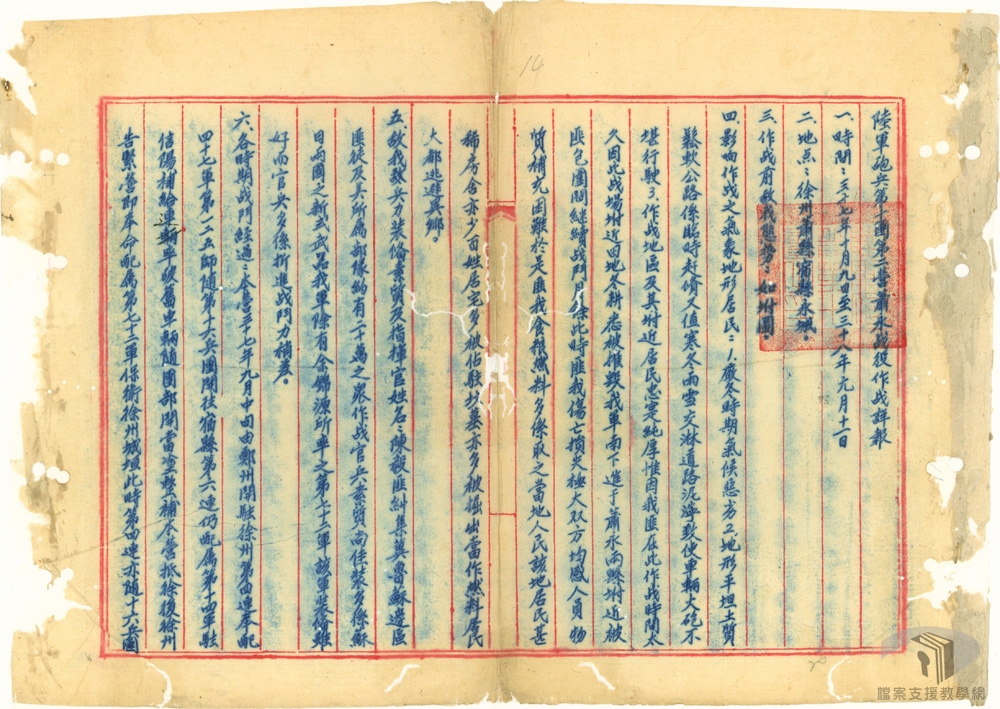 14
陸軍砲兵第十團第二營蕭永戰役作战詳報
一、時間：三十七年十月九日至三十八年元月十一日
二、地点：徐州蕭縣宿縣永城。
三、作战前敵我態势：如附圖。
四、影响作战之气象地形居民：1.嚴冬時期氣候惡劣2.地形平坦土質
鬆軟公路係臨時赶脩又值寒冬雨雪交淋道路泥濘致使車輛大砲不
堪行駛3.作战地區及其附近居民忠实純厚惟因我匪在此作战時間太
久因此战場附近田地冬耕悉被摧毀我軍南下進于蕭永兩縣附近被
匪包圍間継續战鬥月余此時匪我傷亡損失極大双方均感人員物
質補充困難於是匪我食粮燃料多係取之當地人民該地居民甚
稀房舍亦少百姓居宅多被拆毀坟墓亦多被掘出當作燃料居民
大都逃避異鄉。
五、敌我兵力裝俻素質及指揮官姓名：陳毅匪糾集冀魯蘇邊區
匪徒及其所属部隊約有二十萬之眾作战官兵素質尚佳裝多係蘇
日兩國之新式武器我軍除有余錦源所率之第七十二軍該軍裝俻雖
好而官兵多係新進战鬥力稍差。
六、各時期战鬥経過：本營三十七年九月中旬由鄭州開駐徐州第四連奉配
四十七軍第一二五師随第十六兵團開往宿縣第六連仍配属第十四軍駐
信陽補給連輛車駛屬車輛随團部開當塗整補本營抵徐後徐州
告緊營部奉命配属第七十二軍保衛徐州城垣此時第四連亦随十六兵團
檔案支援教學網